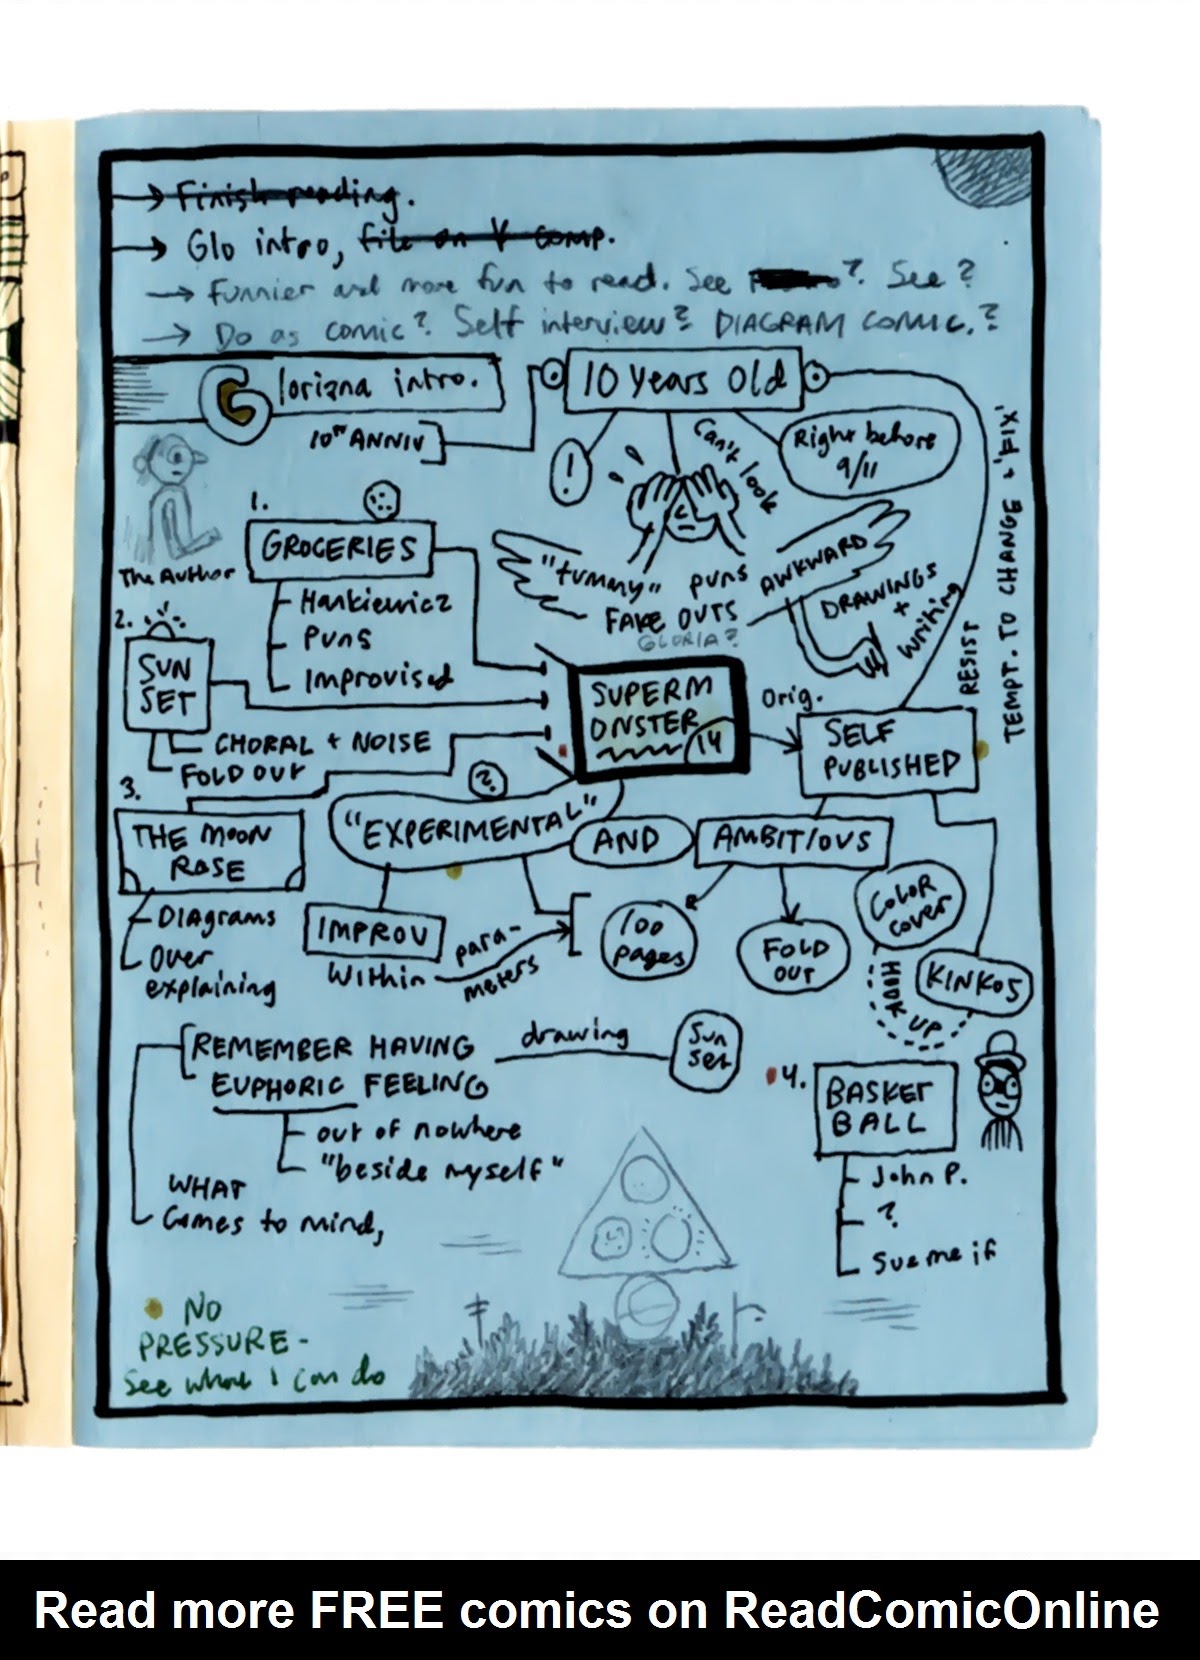 → Finish reading.
→ Glo intro, file on V comp.
→ Funnier and more fun to read. See ? See ?
→ Do as comic? Self interview? DIAGRAM COMIC.?
Glorizna intro.
10TH ANNIV
10 years old
!
Can't look
Right before
9/11
RESIST
TEMPT. TO CHANGE + 'FIX'
The Author
1.
GROCERIES
Hankiewicz
Puns
Improvised
"tummy" puns
FAKE OUTS
GLORIA?
AWKWARD
DRAWINGS
+
writing
2.
SUN
SET
CHORAL + NOISE
FOLD OUT
SUPERM
ONSTER
14
Orig.
SELF
PUBLISHED
3.
THE MOON
ROSE
DIAGRAMS
Over
explaining
?
"EXPERIMENTAL"
AND
AMBITIOUS
IMPROV
Within para-
meters
100
pages
FOLD
OUT
COLOR
COVER
HOOK UP
KINKOS
REMEMBER HAVING
EUPHORIC FEELING
drawing
Sun
set
out of nowhere
"beside myself"
WHAT
Comes to mind,
4.
BASKET
BALL
John P.
?
Sue me if
NO
PRESSURE -
See what I can do
Read more FREE comics on ReadComicOnline